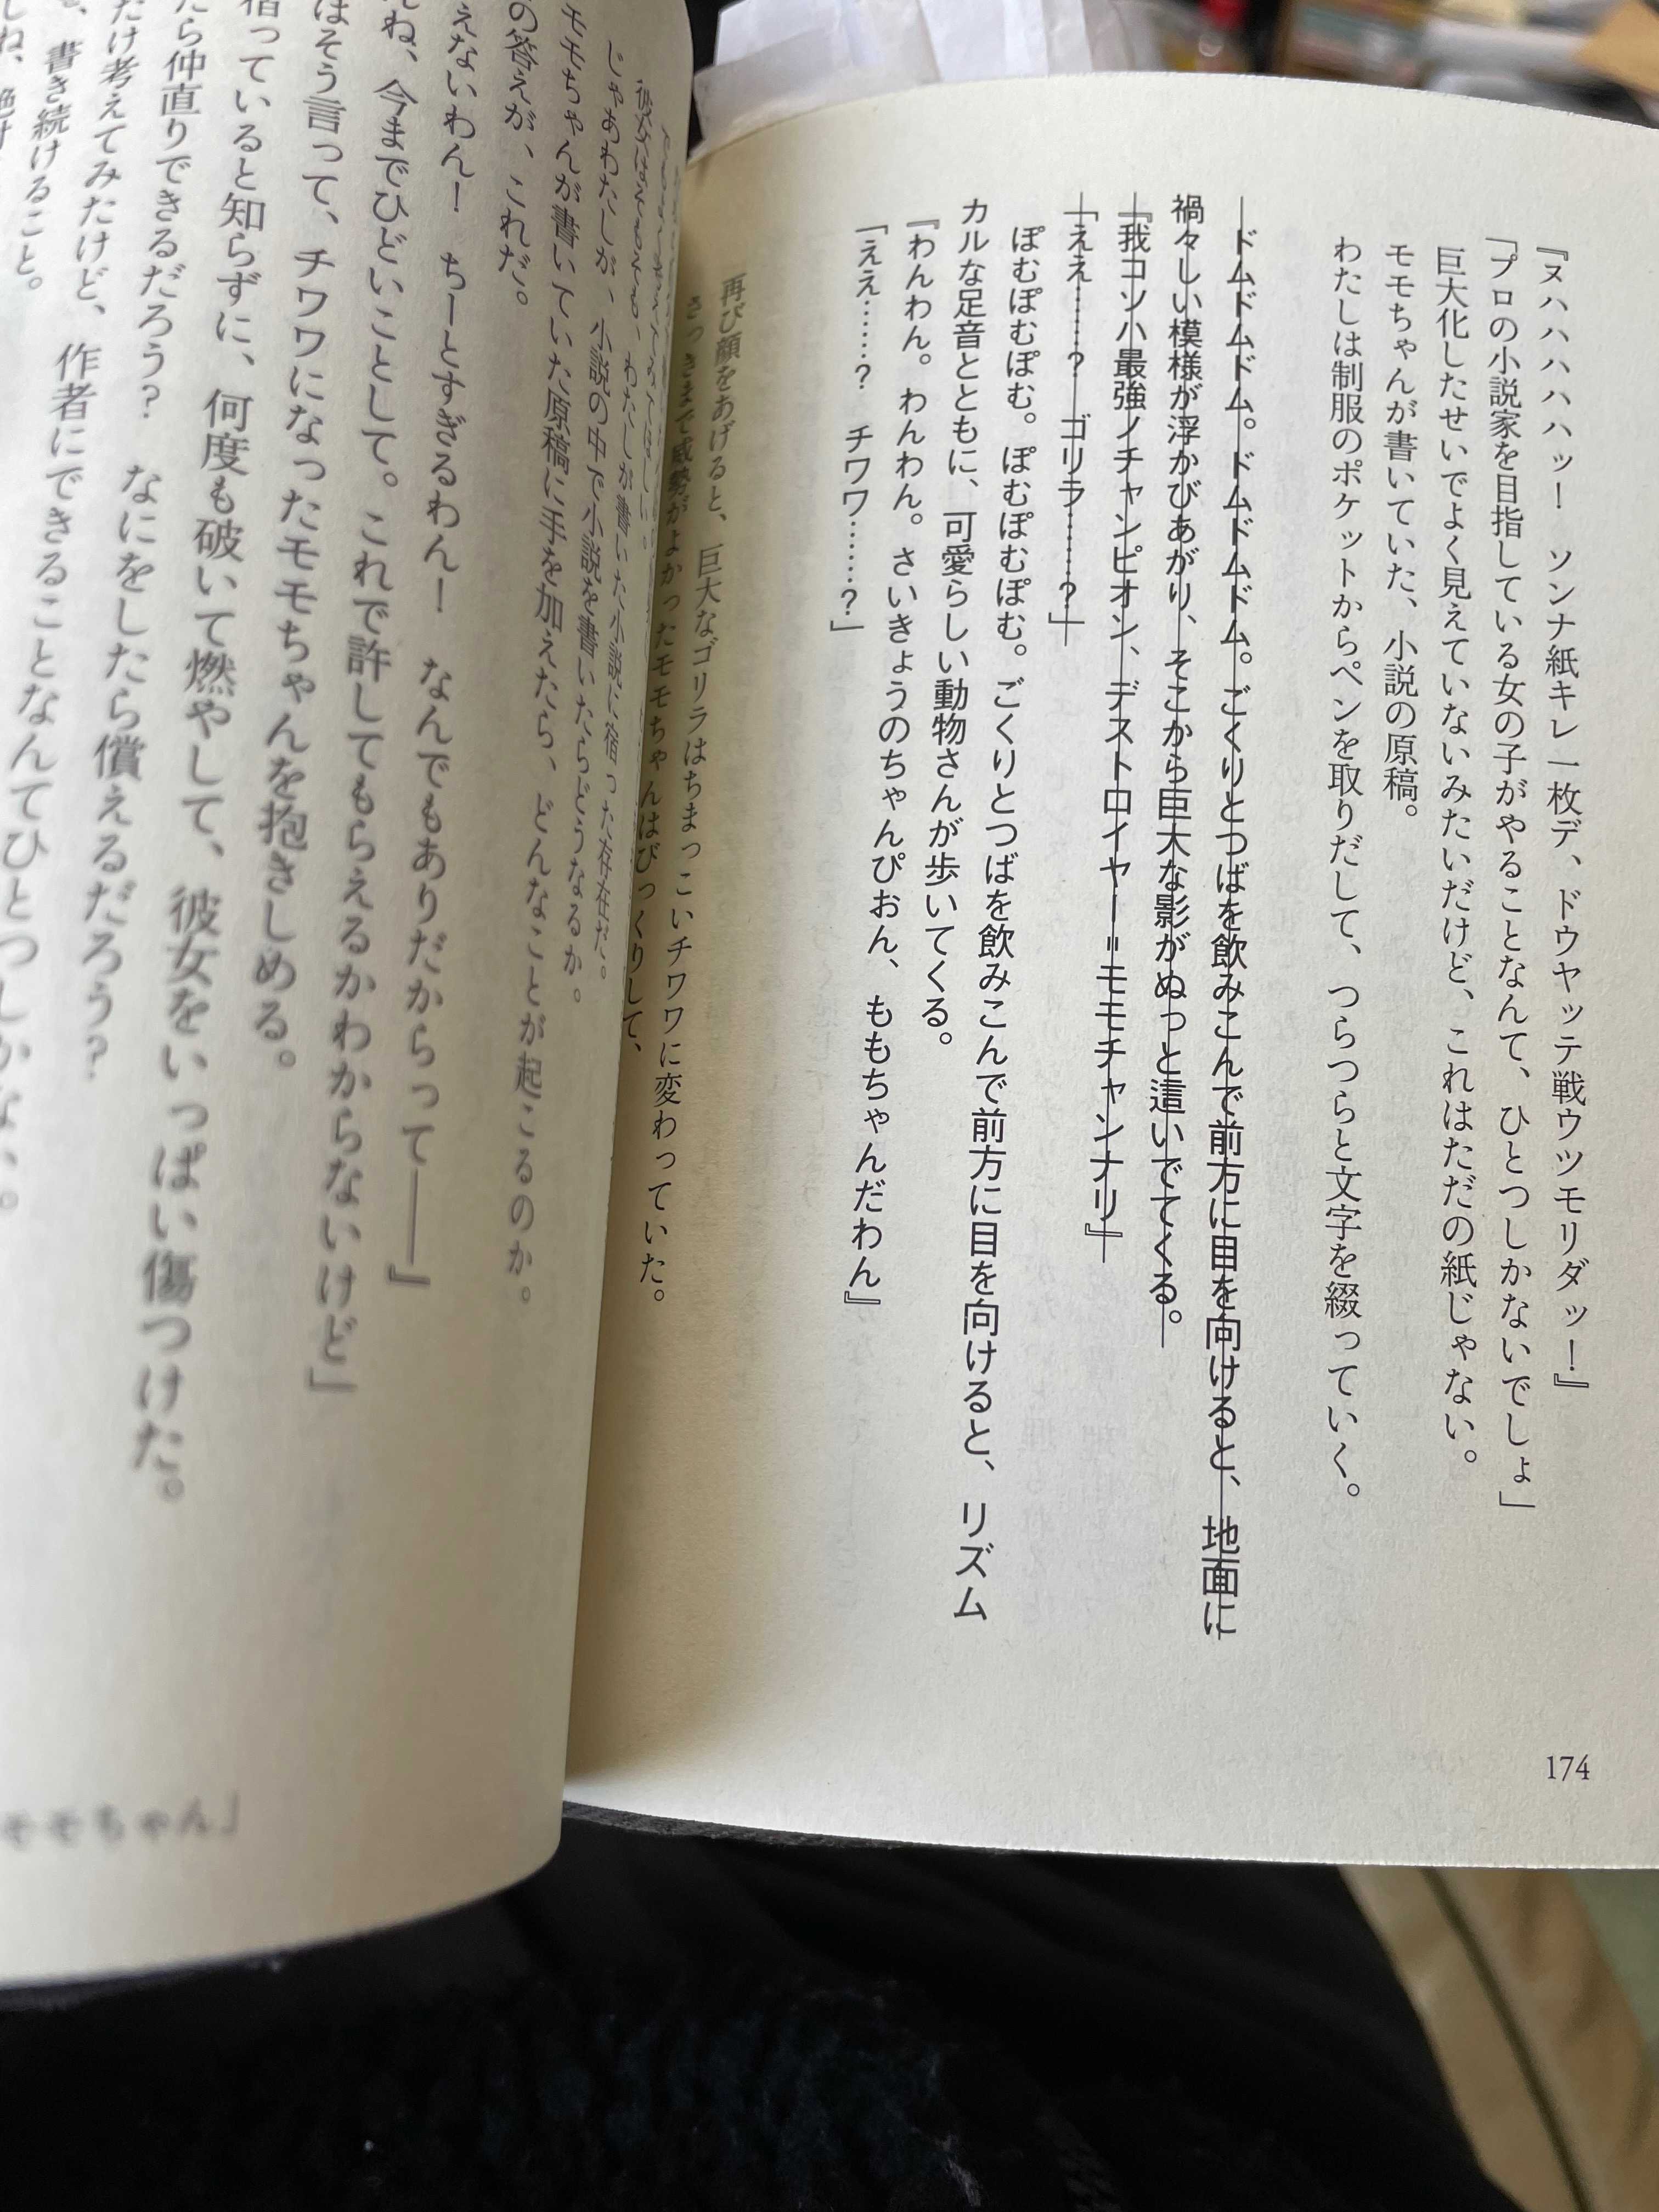 『ヌハハハハハッ！　ソンナ紙キレ一枚デ、ドウヤッテ戦ウツモリダッ！』
「プロの小説家を目指している女の子がやることなんて、ひとつしかないでしょ」
巨大化したせいでよく見えていないみたいだけど、これはただの紙じゃない。
モモちゃんが書いていた、小説の原稿。
わたしは制服のポケットからペンを取りだして、つらつらと文字を綴っていく。
ドムドムドム。ドムドムドム。ごくりとつばを飲みこんで前方に目を向けると、地面に
禍々しい模様が浮かびあがり、そこから巨大な影がぬっと這いでてくる。
『我コソ小最強ノチャンピオン、デストロイヤー＝モモチャンナリ』
「ええ……？　ゴリラ……？」
ぽむぽむぽむ。ぽむぽむぽむ。ごくりとつばを飲みこんで前方に目を向けると、リズム
カルな足音とともに、可愛らしい動物さんが歩いてくる。
『わんわん。わんわん。さいきょうのちゃんぴおん、ももちゃんだわん』
「ええ……？　チワワ……？」
再び顔をあげると、巨大なゴリラはちまっこいチワワに変わっていた。
さっきまで威勢がよかったモモちゃんはびっくりして、
174
じゃあわたしが、小説の中で小説を書いたらどうなるか。
モモちゃんが書いていた原稿に手を加えたら、どんなことが起こるのか。
の答えが、これだ。
えないわん！　ちーとすぎるわん！　なんでもありだからって――』
んね、今までひどいことして。これで許してもらえるかわからないけど」
はそう言って、チワワになったモモちゃんを抱きしめる。
宿っていると知らずに、何度も破いて燃やして、彼女をいっぱい傷つけた。
たら仲直りできるだろう？　なにをしたら償えるだろう？
だけ考えてみたけど、作者にできることなんてひとつしかない。
書き続けること。
モモちゃん」